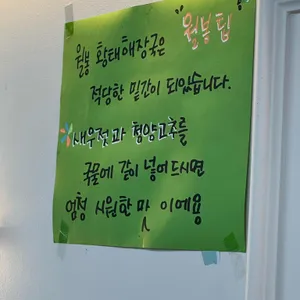 "월봉 팁"
월봉 황태해장국은
적당한 밑간이 되있습니다.
새우젓과 청양고추를
국물에 같이 넣어드시면
엄청 시원한 마 이에용